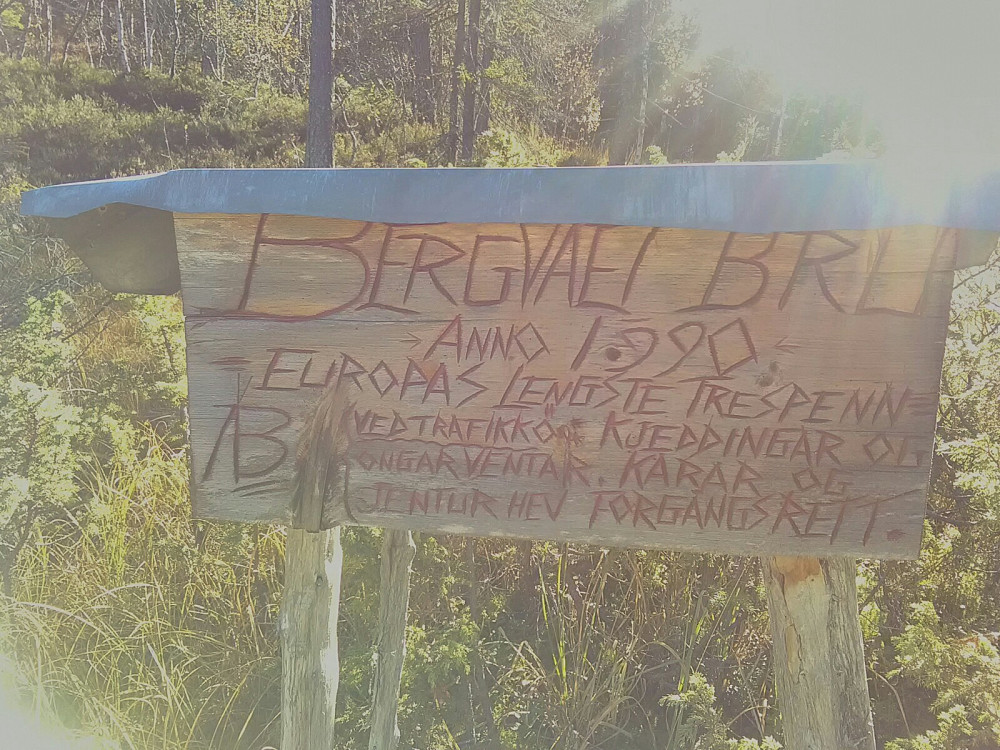 BERGVAEI BRU
ANNO 1990
EUROPAS LENGSTE TRESPENN
VEDTRAFIKKÖ KJEDDINGAR OG
B ONGAR VENTAR. KARAR OG
JENTUR HEV FORGANGSRETT.